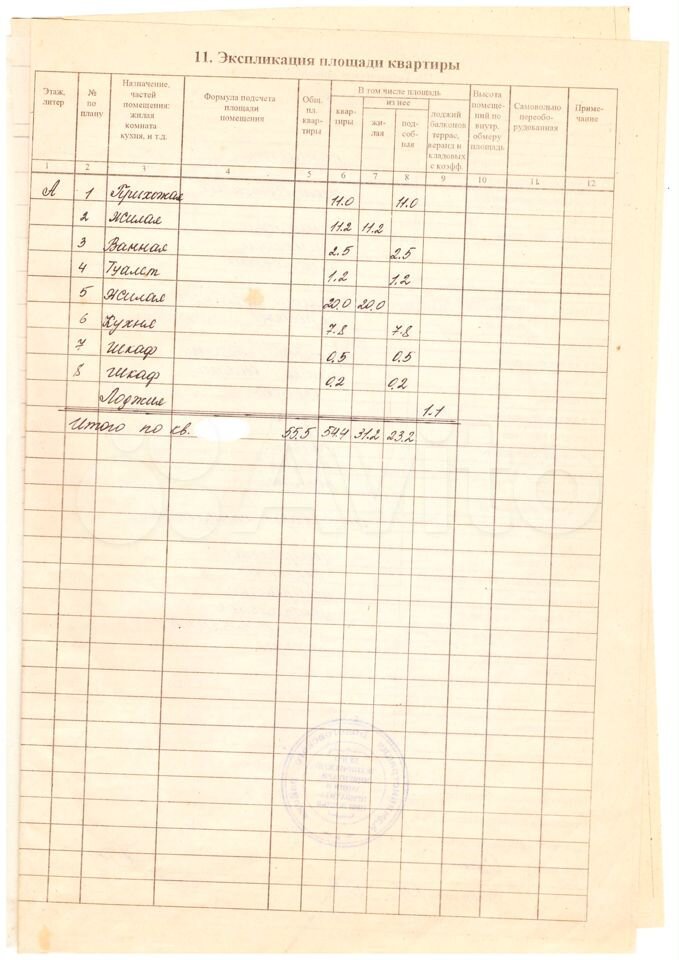 11. Экспликация площади квартиры
Этаж, литер | № по плану | Назначение, частей помещения: жилая комната кухня, и т.д. | Формула подсчета площади помещения | Общ. пл. квар- тиры | В том числе площадь | Высота помеще- ний по внутр. обмеру площадь | Самовольно переобо- рудованная | Приме- чание
квар- тиры | из нее | лоджий балконов террас, веранд и кладовых с коэфф.
жи- лая | под- соб- ная
1 2 3 4 5 6 7 8 9 10 11 12
А 1 Прихожая 11.0 11.0
2 Жилая 11.2 11.2
3 Ванная 2.5 2.5
4 Туалет 1.2 1.2
5 Жилая 20.0 20.0
6 Кухня 7.8 7.8
7 Шкаф 0,5 0.5
8 Шкаф 0.2 0.2
Лоджия 1.1
Итого по кв. 55.5 54.4 31.2 23.2
Avito